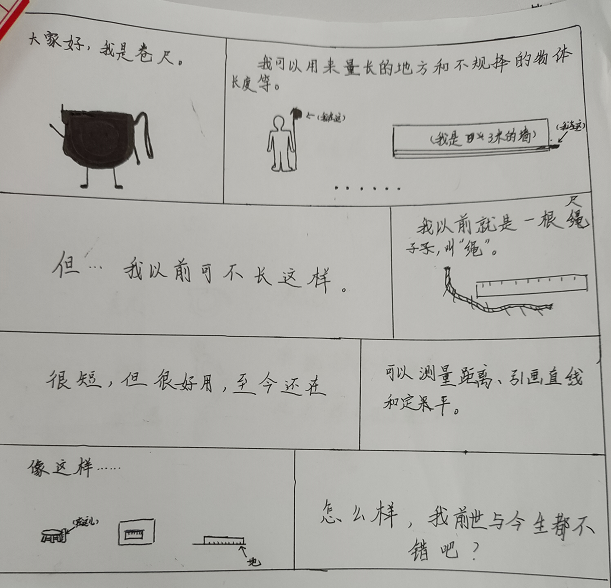 大家好，我是卷尺。
我可以用来量长的地方和不规择的物体
长度等。
←(我在这)
(我是 3米的墙)
(我在这)
......
但… 我以前可不长这样。
我以前就是一根绳
尺
子，叫“绳”。
很短，但很好用，至今还在
可以测量距离、引画直线
和定平。
像这样……
(在这儿)
地
怎么样，我前世与今生都不
错吧？